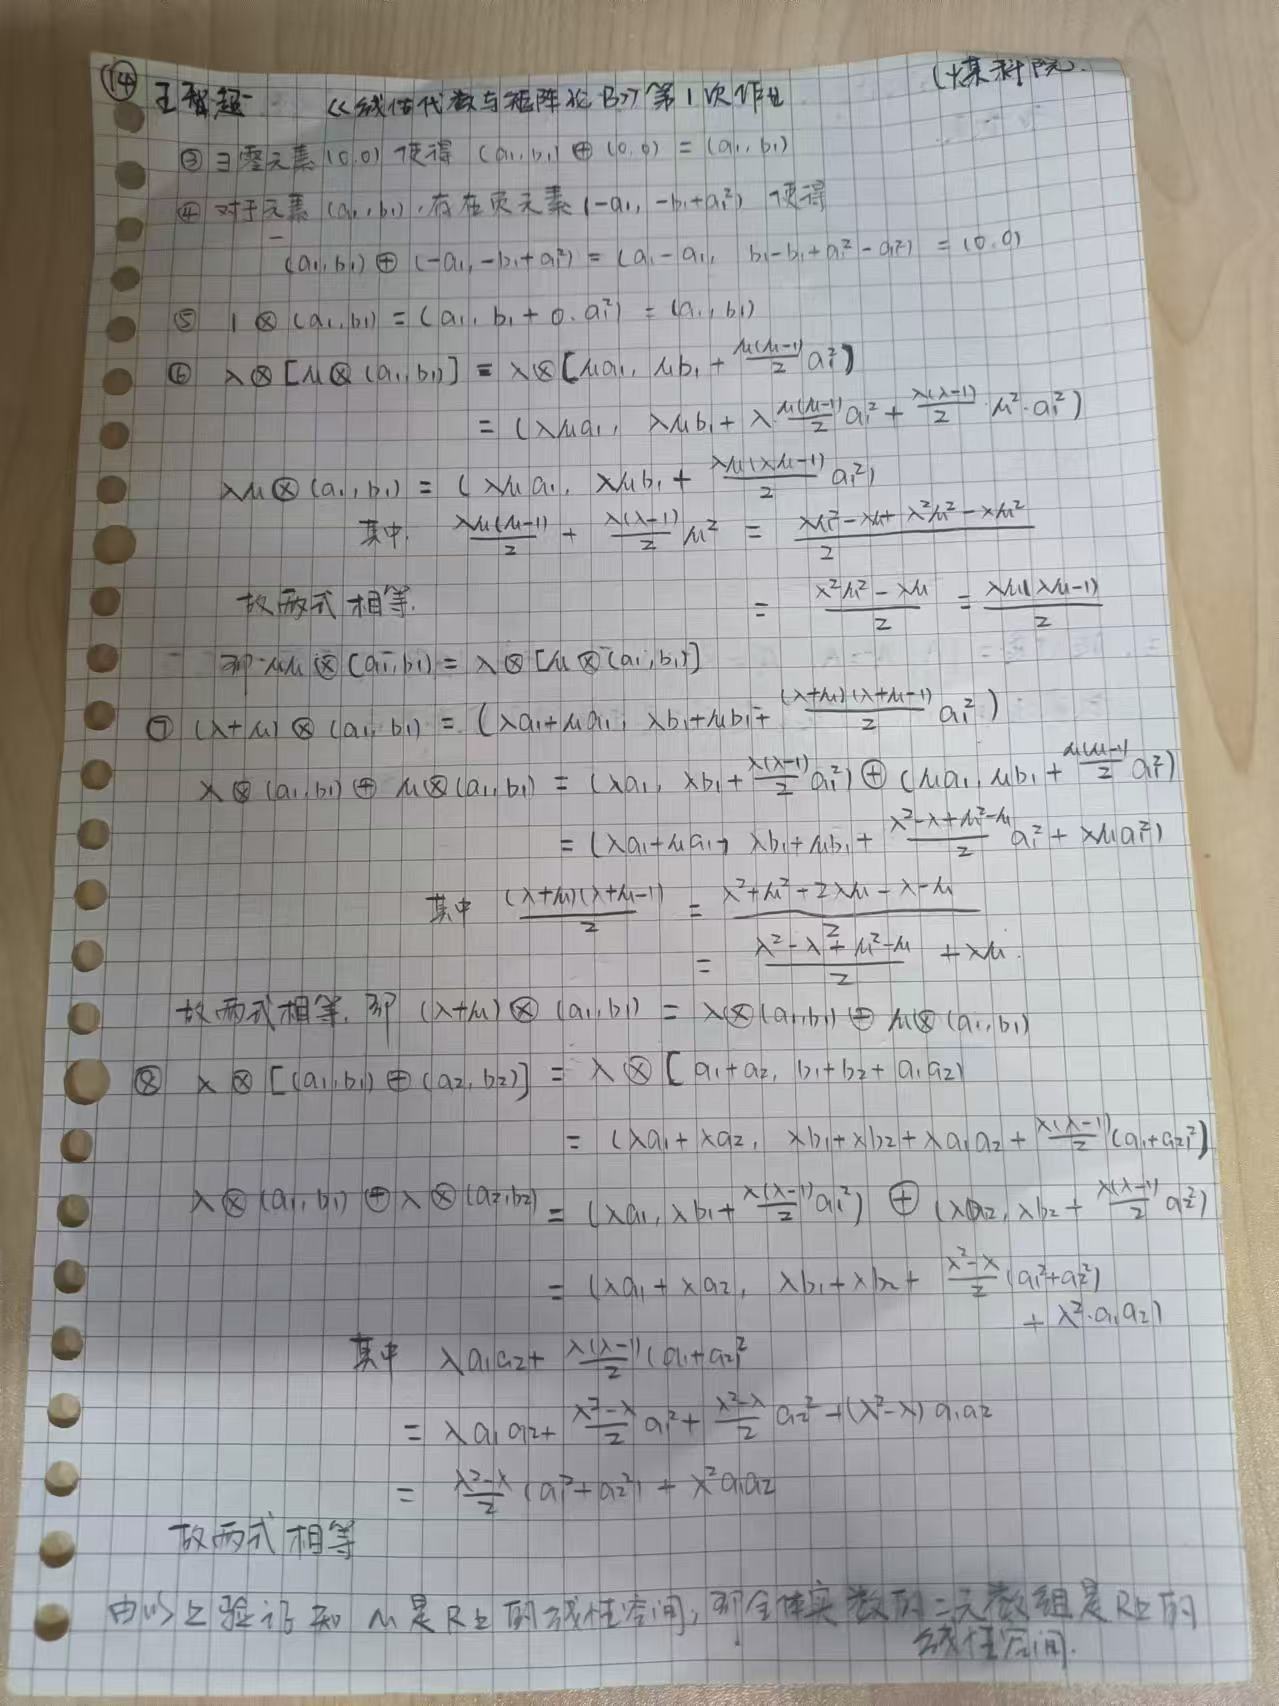 ⑭ 王智超 《线性代数与矩阵论B》第1次作业 (十某科院).
③ ∃零元素(0,0) 使得 (a₁,b₁)⊕(0,0) = (a₁,b₁)
④ 对于元素(a₁,b₁),存在灵元素(-a₁, -b₁+a₁²) 使得
(a₁,b₁)⊕(-a₁,-b₁+a₁²) = (a₁-a₁, b₁-b₁+a₁²-a₁²) = (0,0)
⑤ 1⊗(a₁,b₁) = (a₁, b₁+0·a₁²) = (a₁,b₁)
⑥ λ⊗[μ⊗(a₁,b₁)] = λ⊗[μa₁, μb₁+\frac{μ(μ-1)}{2}a₁²]
= (λμa₁, λμb₁+λ·\frac{μ(μ-1)}{2}a₁²+\frac{λ(λ-1)}{2}·μ²·a₁²)
λμ⊗(a₁,b₁) = (λμa₁, λμb₁+\frac{λμ(λμ-1)}{2}a₁²)
其中. \frac{λμ(μ-1)}{2}+\frac{λ(λ-1)}{2}μ² = \frac{λμ²-λμ+λ²μ²-λμ²}{2}
故两式相等. = \frac{λ²μ²-λμ}{2} = \frac{λμ(λμ-1)}{2}
即 λμ⊗(a₁,b₁) = λ⊗[μ⊗(a₁,b₁)]
⑦ (λ+μ)⊗(a₁,b₁) = (λa₁+μa₁, λb₁+μb₁+\frac{(λ+μ)(λ+μ-1)}{2}a₁²)
λ⊗(a₁,b₁)⊕μ⊗(a₁,b₁) = (λa₁, λb₁+\frac{λ(λ-1)}{2}a₁²)⊕(μa₁, μb₁+\frac{μ(μ-1)}{2}a₁²)
= (λa₁+μa₁, λb₁+μb₁+\frac{λ²-λ+μ²-μ}{2}a₁²+λμa₁²)
其中 \frac{(λ+μ)(λ+μ-1)}{2} = \frac{λ²+μ²+2λμ-λ-μ}{2}
= \frac{λ²-λ+μ²-μ}{2}+λμ.
故两式相等. 即 (λ+μ)⊗(a₁,b₁) = λ⊗(a₁,b₁)⊕μ⊗(a₁,b₁)
⑧ λ⊗[(a₁,b₁)⊕(a₂,b₂)] = λ⊗[a₁+a₂, b₁+b₂+a₁a₂)
= (λa₁+λa₂, λb₁+λb₂+λa₁a₂+\frac{λ(λ-1)}{2}(a₁+a₂)²)
λ⊗(a₁,b₁)⊕λ⊗(a₂,b₂) = (λa₁, λb₁+\frac{λ(λ-1)}{2}a₁²)⊕(λa₂, λb₂+\frac{λ(λ-1)}{2}a₂²)
= (λa₁+λa₂, λb₁+λb₂+\frac{λ²-λ}{2}(a₁²+a₂²)
+λ²·a₁a₂)
其中 λa₁a₂+\frac{λ(λ-1)}{2}(a₁+a₂)²
= λa₁a₂+\frac{λ²-λ}{2}a₁²+\frac{λ²-λ}{2}a₂²+(λ²-λ)a₁a₂
= \frac{λ²-λ}{2}(a₁²+a₂²)+λ²a₁a₂
故两式相等
由以上验证知 M是R上的线性空间,即全体实数的二元数组是R上的
线性空间.